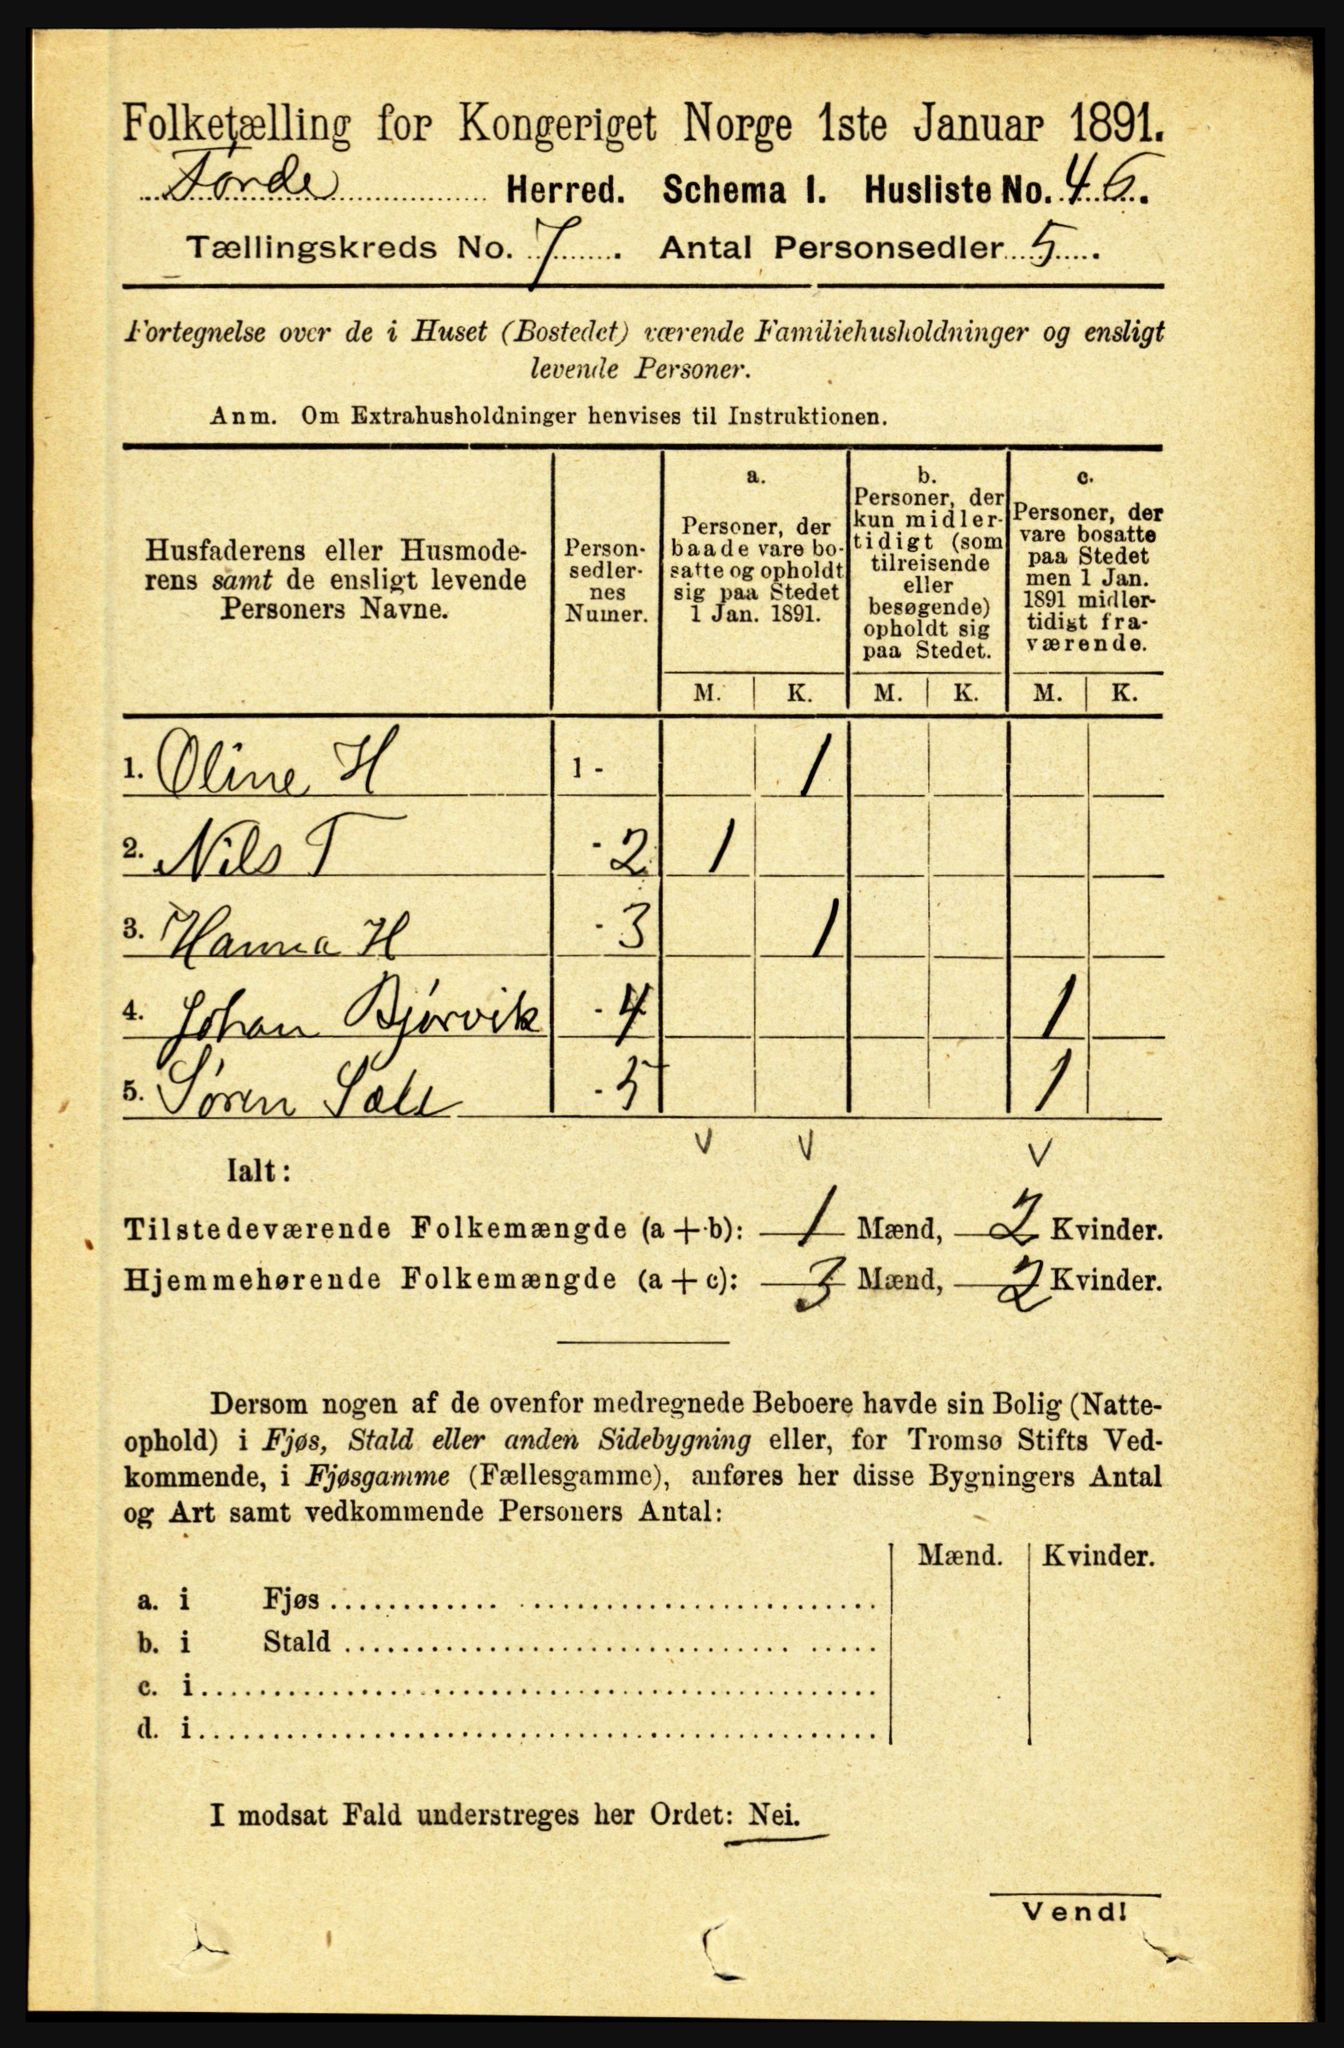 Folketælling for Kongeriget Norge 1ste Januar 1891.
Førde Herred. Schema I. Husliste No. 46.
Tællingskreds No. 7. Antal Personsedler 5.
Fortegnelse over de i Huset (Bostedet) værende Familiehusholdninger og ensligt
levende Personer.
Anm. Om Extrahusholdninger henvises til Instruktionen.
Husfaderens eller Husmode-
rens samt de ensligt levende
Personers Navne.
Person-
sedler-
nes
Numer.
a.
Personer, der
baade vare bo-
satte og opholdt
sig paa Stedet
1 Jan. 1891.
b.
Personer, der
kun midler-
tidigt (som
tilreisende
eller
besøgende)
opholdt sig
paa Stedet.
c.
Personer, der
vare bosatte
paa Stedet
men 1 Jan.
1891 midler-
tidigt fra-
værende.
M. K. M. K. M. K.
1. Oline H 1 - 1
2. Nils T - 2 1
3. Hanna H - 3 1
4. Johan Bjørvik - 4 1
5. Søren - 5 1
V V V
Ialt:
Tilstedeværende Folkemængde (a + b): 1 Mænd, 2 Kvinder.
Hjemmehørende Folkemængde (a + c): 3 Mænd, 2 Kvinder.
Dersom nogen af de ovenfor medregnede Beboere havde sin Bolig (Natte-
ophold) i Fjøs, Stald eller anden Sidebygning eller, for Tromsø Stifts Ved-
kommende, i Fjøsgamme (Fællesgamme), anføres her disse Bygningers Antal
og Art samt vedkommende Personers Antal:
Mænd. Kvinder.
a. i Fjøs
b. i Stald
c. i
d. i
I modsat Fald understreges her Ordet: Nei.
Vend!